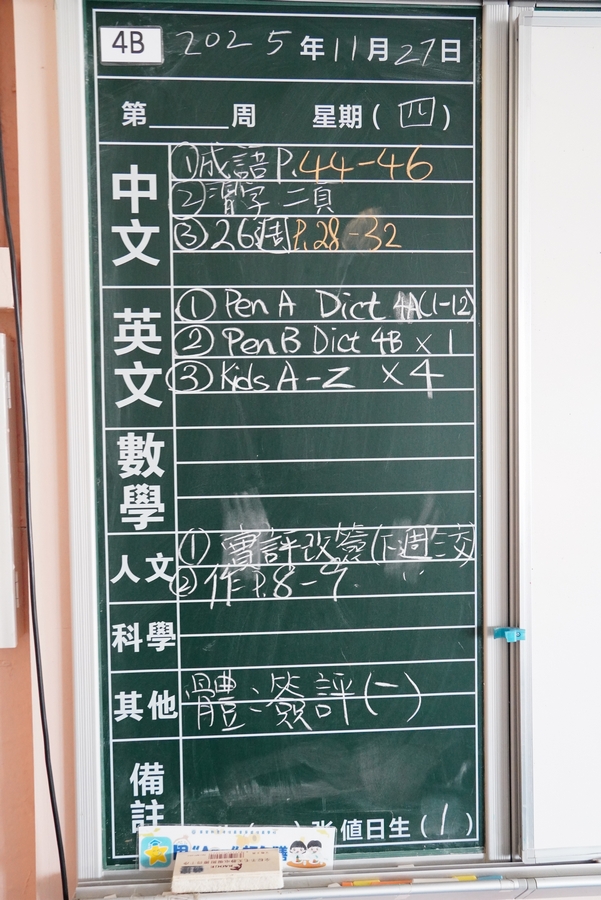 4B 2025年11月27日
第____周 星期(四)
中文
①成語 P.44-46
②潛字 二頁
③26週 P.28-32
英文
① Pen A Dict 4A(1-12)
② Pen B Dict 4B × 1
③ Kids A-Z × 4
數學
人文
① 實評改簽(下週三交)
② 作 P.8-9
科學
其他
體:簽評(一)
備註
值日生(1)